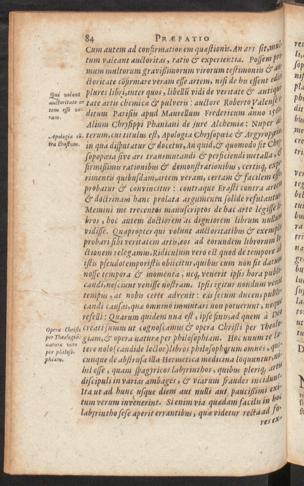 84 PRÆFATIO
Cum autem ad confirmationem quæstionis. An ars sit, mul-
tum valeant auctoritas, ratio & experientia. Possem pro-
mum multorum gravissimorum virorum testimoniis & au-
ctoritate confirmare veram esse artem, nisi de hu essent editi
plures libri, inter quos, libelli vidi de veritate & antiqui-
tate artis chimicæ & pulveris: auctore Roberto Valensi
Parisiis apud Mavrellum Fredericum anno
Alium Chrysippi Phaniani de jure Alchemiæ: Nuper
terum, cui titulus est, Apologia Chrysopœiæ & Argyropœiæ
in qua disputatur & docetur, An quid, & quomodo sit Chry-
sopœia sive ars transmutandi & perficiendi metalla,
firmissimis rationibus & demonstrationibus, certisq́, expe-
rimentis quibusdam, artem veram, certam & facilem esse
probatur & convincitur: contraque Erasti contra artem
& doctrinam hanc prolata argumenta solide refutantur.
Memini me trecentos manuscriptos de hac arte legisse li-
bros, hoc autem doctiorem ac digniorem librum nullum
vidisse. Quapropter qui volunt auctoritatibus & exemplis
probari sibi veritatem artis, eos ad eorundem librorum le-
ctionem relegamus. Ridiculum vero est quod de tempore
istis pseudotemporistis obiicitur, quibus cum non sit datum
nosse tempora & momenta, neq́, venerit ipsis hora publi-
candi, nesciunt venisse nostram. Ipsi igitur nondum venisse
tempus, at nobis certe advenit: cui secum ducem
candi causas, qua omnino immutari non poterunt,
refelli: Quarum quidem una est, ipse finis, ad quem à Deo
creati sumus ut cognoscamus & opera Christi per Theolo-
giam, & opera naturæ per philosophiam. Hoc unum te la-
tere nolo (candide lector) libros philosophorum omnes, qui-
cunque de abstrusa illa Hermetica medicina loquuntur,
hil esse, quam spagiricos labyrinthos, quibus pleriq́, artis
discipuli in varias ambages, & viarum fraudes incidunt:
Ita ut ad hunc usque diem aut nulli aut paucissimi exi-
tum verum invenerint. Si enim via quædam facilis in hoc
labyrintho sese aperit errantibus, qua videtur recta ad fo-
res ex-
Qui volunt
auctoritate ar
tem esse ve-
ram.
Apologia cõ-
tra Erastum.
Opera Christi
per Theologiã:
naturæ vero
per philoso-
phiam.